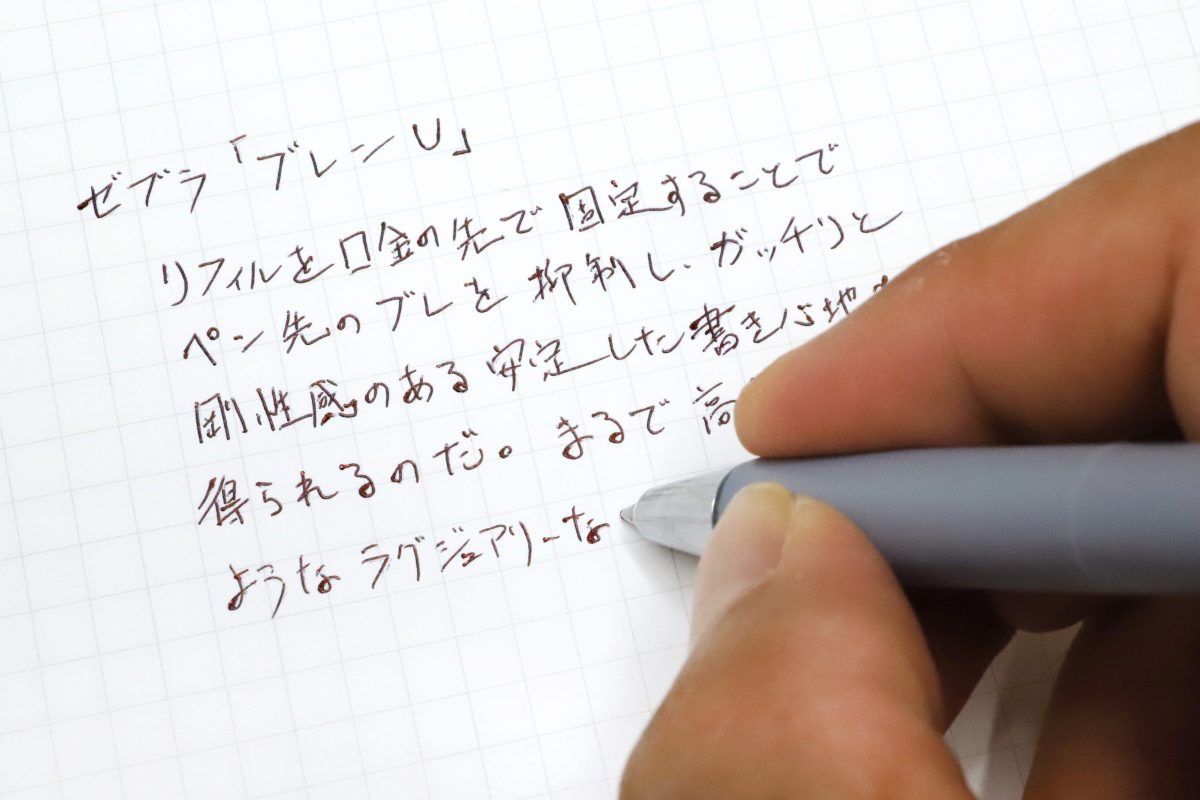 ゼブラ「ブレンU」
リフィルを口金の先で固定することで
ペン先のブレを抑制し、ガッチリと
剛性感のある安定した書き心地
得られるのだ。まるで高
ようなラグジュアリーな